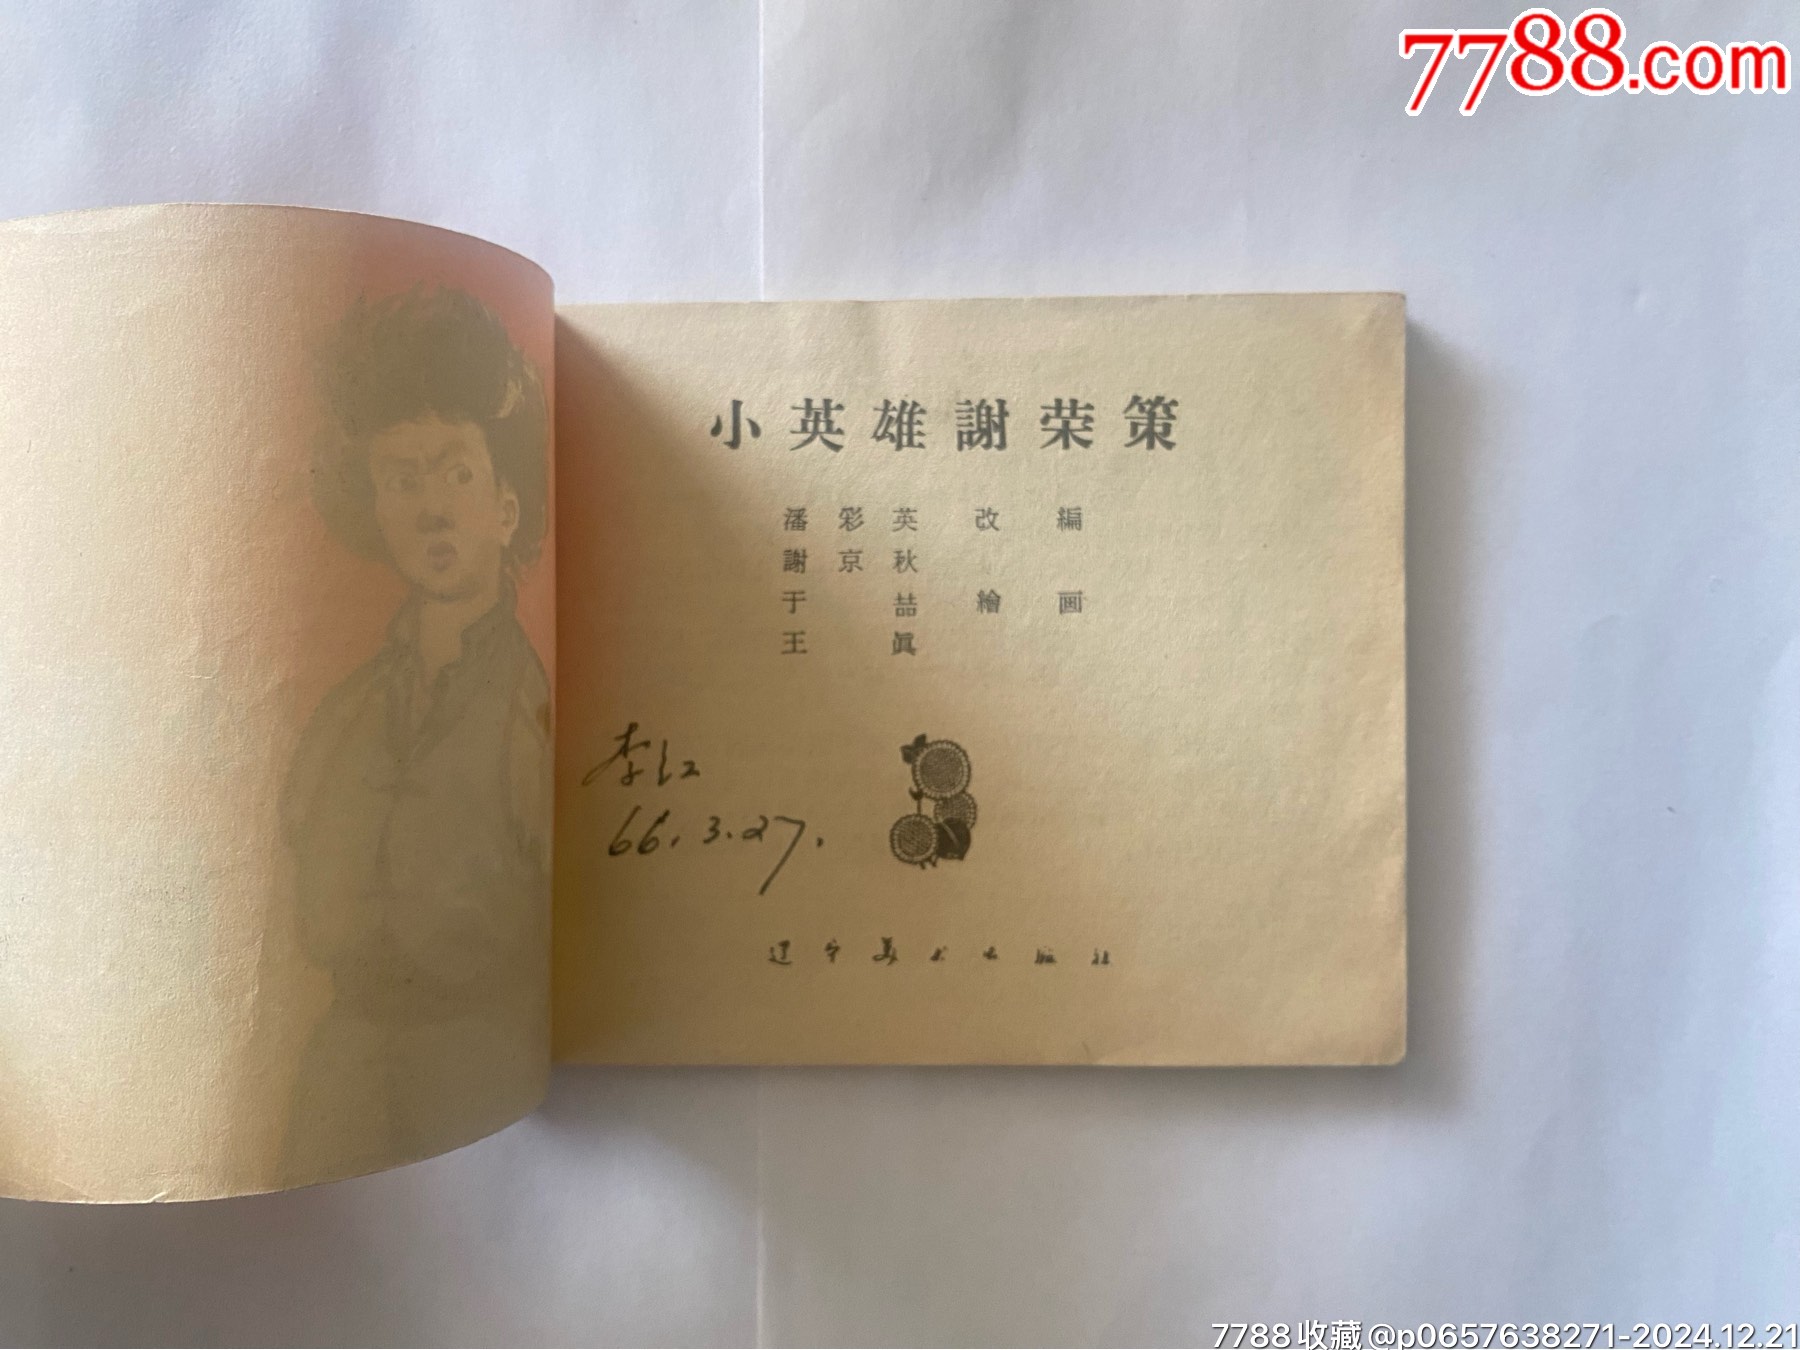 7788.com
小英雄謝荣策
潘彩英 改編
謝京秋
于喆 繪画
王眞
李江
66.3.27.
辽宁美术出版社
7788收藏@p0657638271-2024.12.21